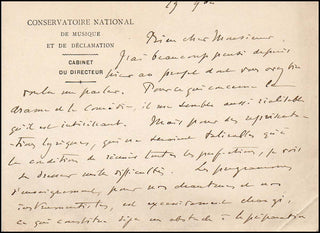 CONSERVATOIRE NATIONAL
DE MUSIQUE
ET DE DÉCLAMATION
CABINET
DU DIRECTEUR
Bien cher Monsieur,
J'ai beaucoup pensé depuis
hier au projet dont vous avez bien
voulu me parler. Pour ce qui concerne le
drame et la Comédie, il me semble aussi réalisable
qu'il est intéressant. Mais pour des représenta-
tions lyriques, qui ne seraient valables qu'à
la condition de réunir toutes les perfections, je vois
de grandes difficultés. Les programmes
d'enseignement, pour nos chanteurs et nos
instrumentistes, est excessivement chargé,
ce qui constitue déjà un obstacle à la préparation